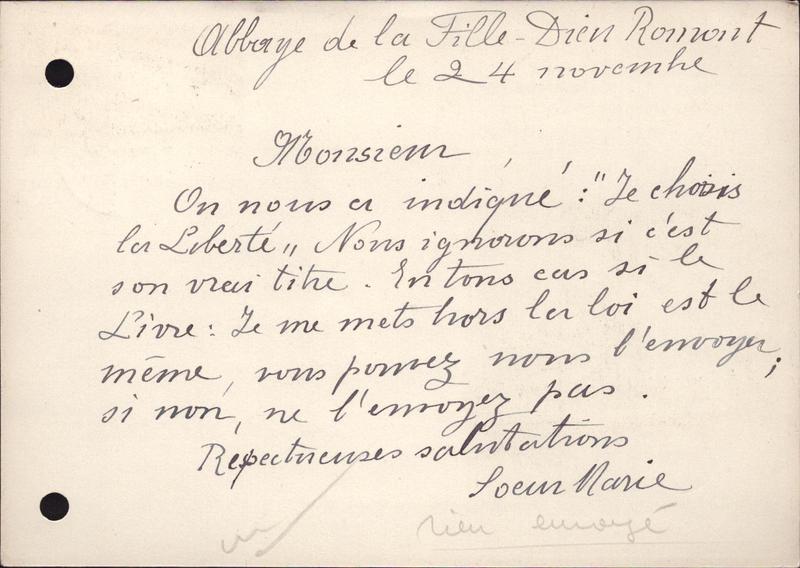 Abbaye de la Fille-Dieu Romont
le 24 novembre
Monsieur
On nous a indiqué : "Je choisis
la Liberté„ Nous ignorons si c'est
son vrai titre. En tous cas si le
Livre : Je me mets hors la loi est le
même, vous pouvez nous l'envoyer ;
si non, ne l'envoyez pas.
Respectueuses salutations
Soeur Marie
rien envoyé